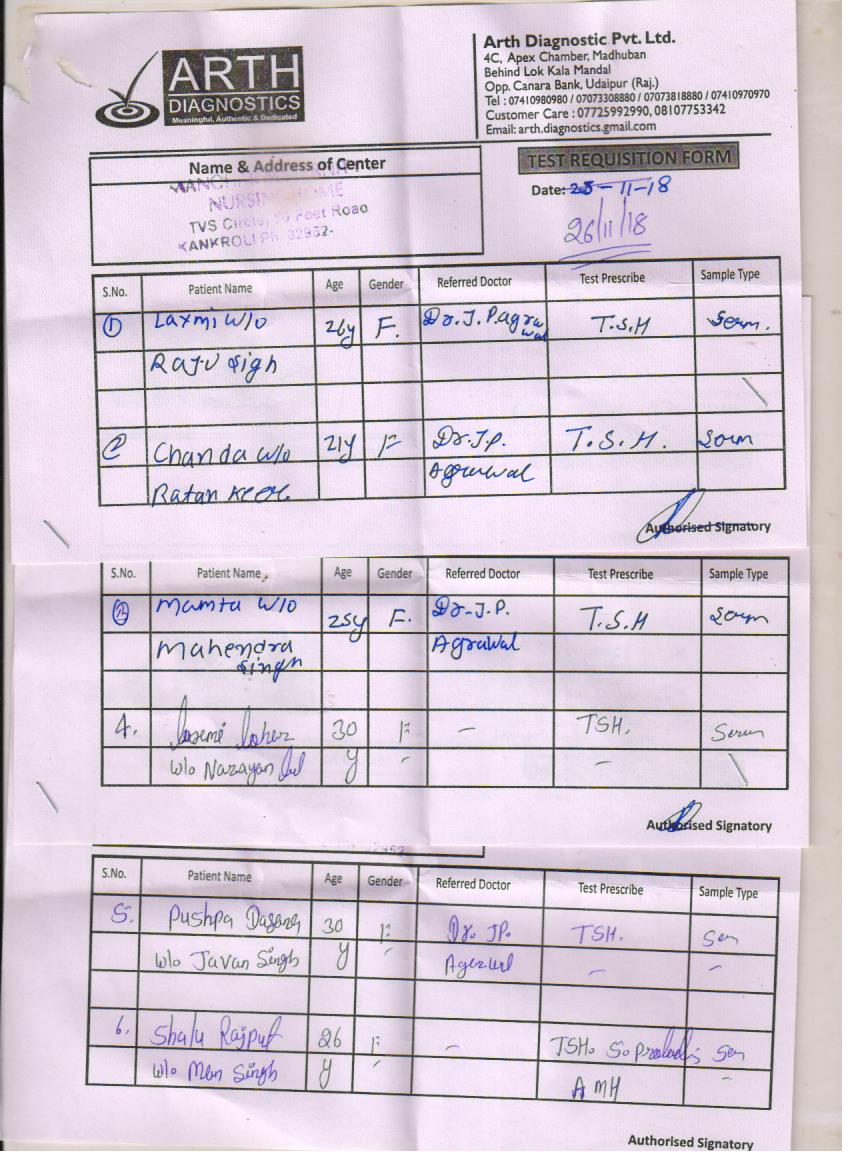 ARTH
DIAGNOSTICS
Meaningful, Authentic & Dedicated
Arth Diagnostic Pvt. Ltd.
4C, Apex Chamber, Madhuban
Behind Lok Kala Mandal
Opp. Canara Bank, Udaipur (Raj.)
Tel : 07410980980 / 07073308880 / 07073818880 / 07410970970
Customer Care : 07725992990, 08107753342
Email: arth.diagnostics.gmail.com
Name & Address of Center
NURSING HOME
TVS Circle, Feet Road
KANKROLI Ph. 02952-
TEST REQUISITION FORM
Date: 25-11-18
26/11/18
S.No. Patient Name Age Gender Referred Doctor Test Prescribe Sample Type
1 Laxmi W/o 26y F. Dr. J. P. Agrawal T.S.H Serm.
Raju Sigh
2 Chanda W/o 21y F Dr. J.P. T.S.H. Serm
Ratan Agrawal
Authorised Signatory
S.No. Patient Name Age Gender Referred Doctor Test Prescribe Sample Type
Mamta W/o 25y F. Dr. J.P. T.S.H Serm
Mahendra Singh Agrawal
4. 30 F - TSH. Serum
W/o Narayan lal y - -
Authorised Signatory
S.No. Patient Name Age Gender Referred Doctor Test Prescribe Sample Type
5. Pushpa 30 F Dr. JP. TSH. Ser
W/o Javan Singh y - - -
6. Shalu Rajput 26 F - TSH. S. Ser
W/o Man Singh y - AMH -
Authorised Signatory